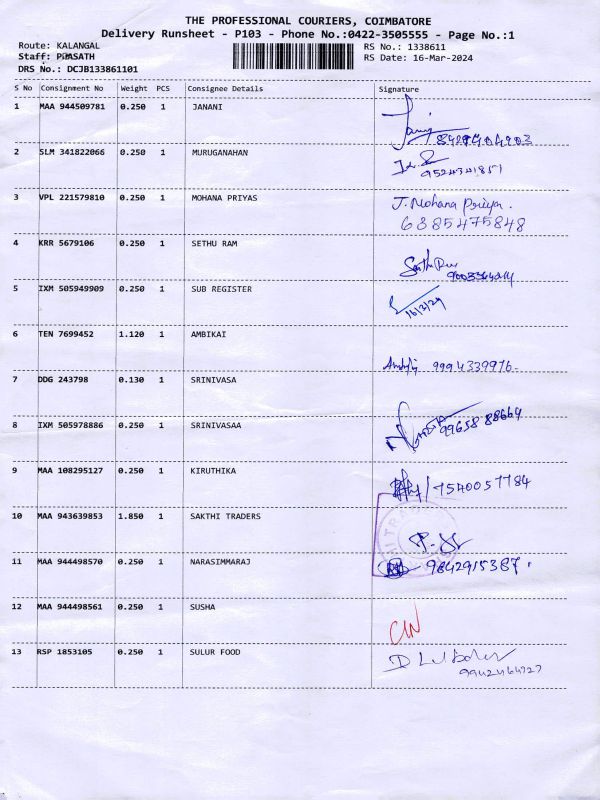 THE PROFESSIONAL COURIERS, COIMBATORE
Delivery Runsheet - P103 - Phone No.:0422-3505555 - Page No.:1
Route: KALANGAL RS No.: 1338611
Staff: PRASATH RS Date: 16-Mar-2024
DRS No.: DCJB133861101
S No Consignment No Weight PCS Consignee Details Signature
1 MAA 944509781 0.250 1 JANANI
2 SLM 341822066 0.250 1 MURUGANAHAN
9524341851
3 VPL 221579810 0.250 1 MOHANA PRIYAS J. Mohana Priya.
6385475848
4 KRR 5679106 0.250 1 SETHU RAM
5 IXM 505949909 0.250 1 SUB REGISTER
16/3/24
6 TEN 7699452 1.120 1 AMBIKAI
9994339976
7 DDG 243798 0.130 1 SRINIVASA
8 IXM 505978886 0.250 1 SRINIVASAA
99658 88664
9 MAA 108295127 0.250 1 KIRUTHIKA
7540057784
10 MAA 943639853 1.850 1 SAKTHI TRADERS
11 MAA 944498570 0.250 1 NARASIMMARAJ
9842915387
12 MAA 944498561 0.250 1 SUSHA
13 RSP 1853105 0.250 1 SULUR FOOD